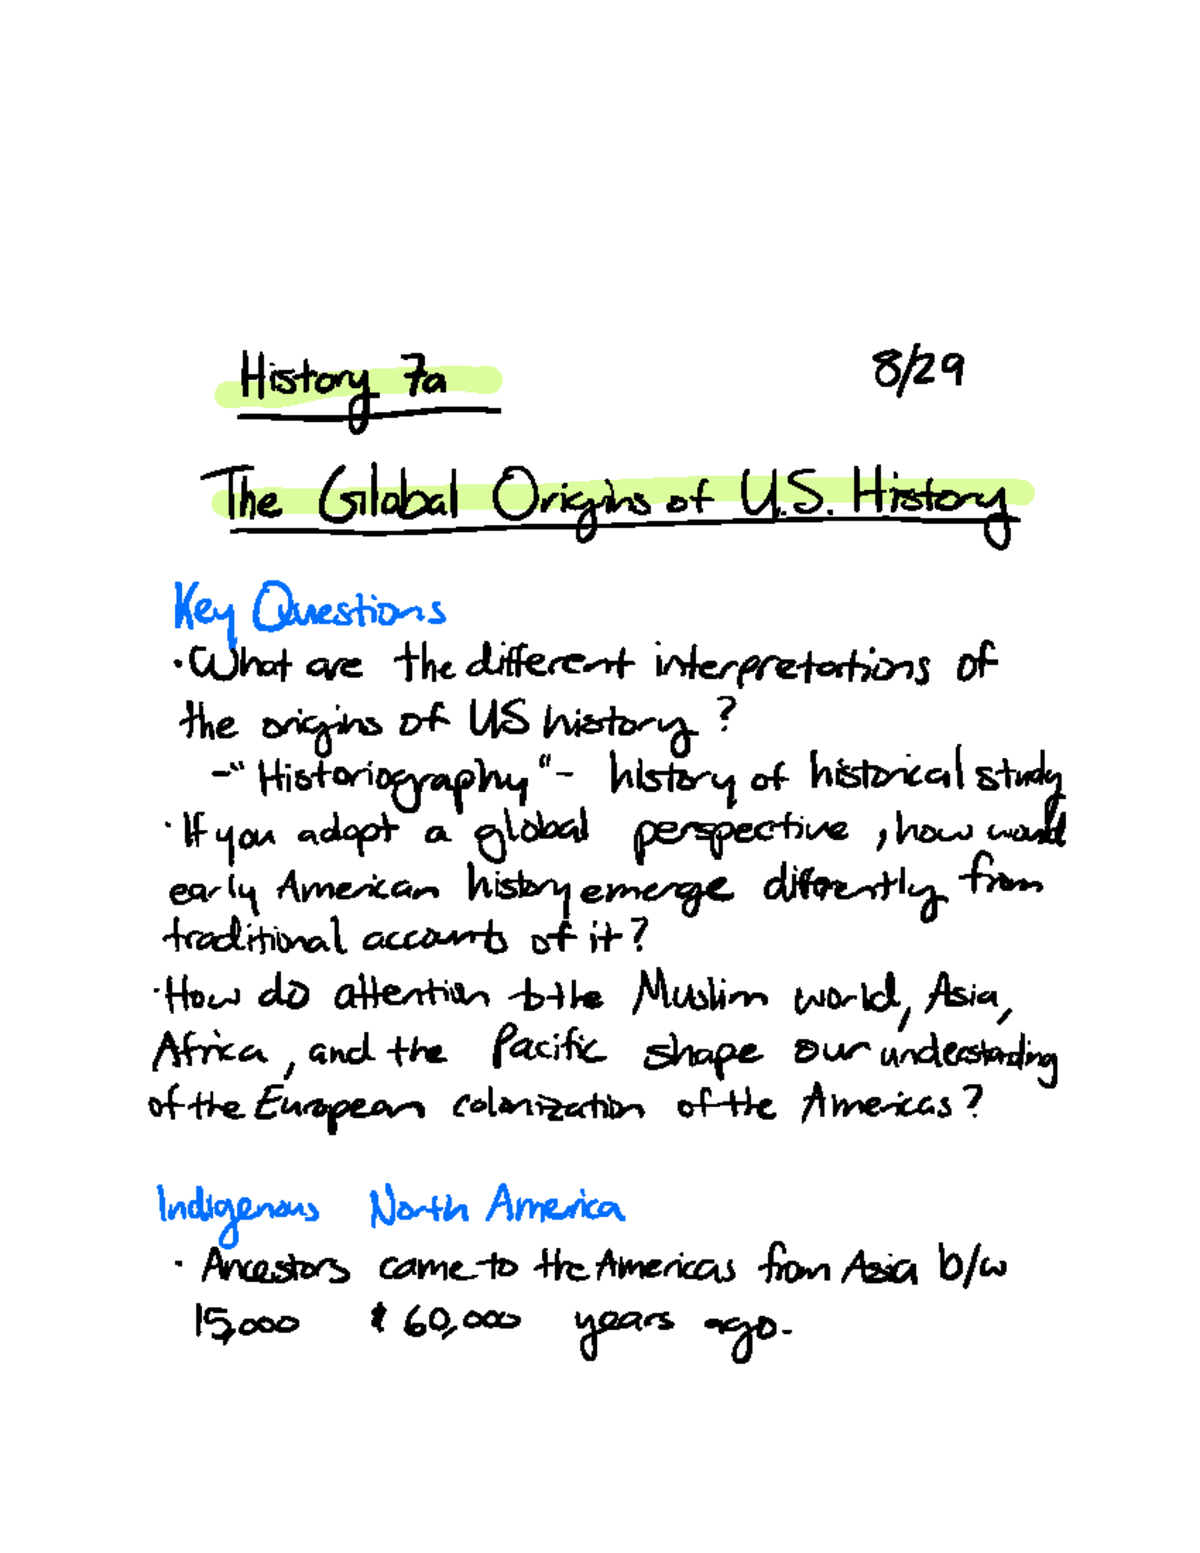 History 7a 8/29
The Global Origins of U.S. History
Key Questions
· What are the different interpretations of
the origins of US history?
-"Historiography"- history of historical study
· If you adopt a global perspective, how would
early American history emerge differently from
traditional accounts of it?
· How do attention to the Muslim world, Asia,
Africa, and the Pacific shape our understanding
of the European colonization of the Americas?
Indigenous North America
· Ancestors came to the Americas from Asia b/w
15,000 & 60,000 years ago.